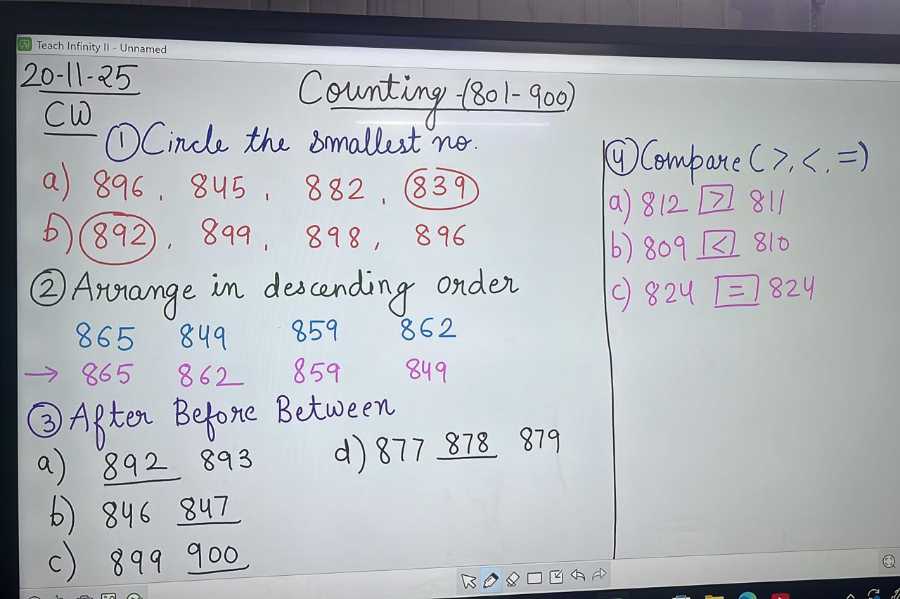 Teach Infinity II - Unnamed
20-11-25
CW
Counting-(801-900)
① Circle the smallest no.
a) 896, 845, 882, 839
b) 892, 899, 898, 896
② Arrange in descending order
865 849 859 862
→ 865 862 859 849
③ After Before Between
a) 892 893
b) 846 847
c) 899 900
d) 877 878 879
④ Compare (>, <, =)
a) 812 > 811
b) 809 < 810
c) 824 = 824